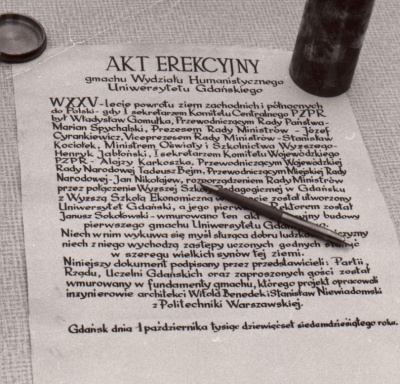 AKT EREKCYJNY
gmachu Wydziału Humanistycznego
Uniwersytetu Gdańskiego
W XXV-lecie powrotu ziem zachodnich i północnych
do Polski-gdy I sekretarzem Komitetu Centralnego PZPR
był Władysław Gomułka, Przewodniczącym Rady Państwa-
Marian Spychalski, Prezesem Rady Ministrów - Józef
Cyrankiewicz, Viceprezesem Rady Ministrów-Stanisław
Kociołek, Ministrem Oświaty i Szkolnictwa Wyższego-
Henryk Jabłoński, I sekretarzem Komitetu Wojewódzkiego
PZPR - Alojzy Karkoszka, Przewodniczącym Wojewódzkiej
Rady Narodowej Tadeusz Bejm, Przewodniczącym Miejskiej Rady
Narodowej - Jan Nikołajew, rozporządzeniem Rady Ministrów
przez połączenie Wyższej Szkoły Pedagogicznej w Gdańsku
z Wyższą Szkołą Ekonomiczną w został utworzony
Uniwersytet Gdański, a jego pierwszym Rektorem został
Janusz Sokołowski-wmurowano ten akt budowy
pierwszego gmachu Uniwersytetu Gdańskiego.
Niech w nim wykuwa się myśl służąca dobru ludzkości
niech z niego wychodzą zastępy uczonych godnych stanąć
w szeregu wielkich synów tej ziemi.
Niniejszy dokument podpisany przez przedstawicieli Partii,
Rządu, Uczelni Gdańskich oraz zaproszonych gości został
wmurowany w fundamenty gmachu, którego projekt opracowali
inżynierowie architekci Witold Benedek i Stanisław Niewiadomski
z Politechniki Warszawskiej.
Gdańsk dnia 1 października tysiąc dziewięćset siedemdziesiątego roku.